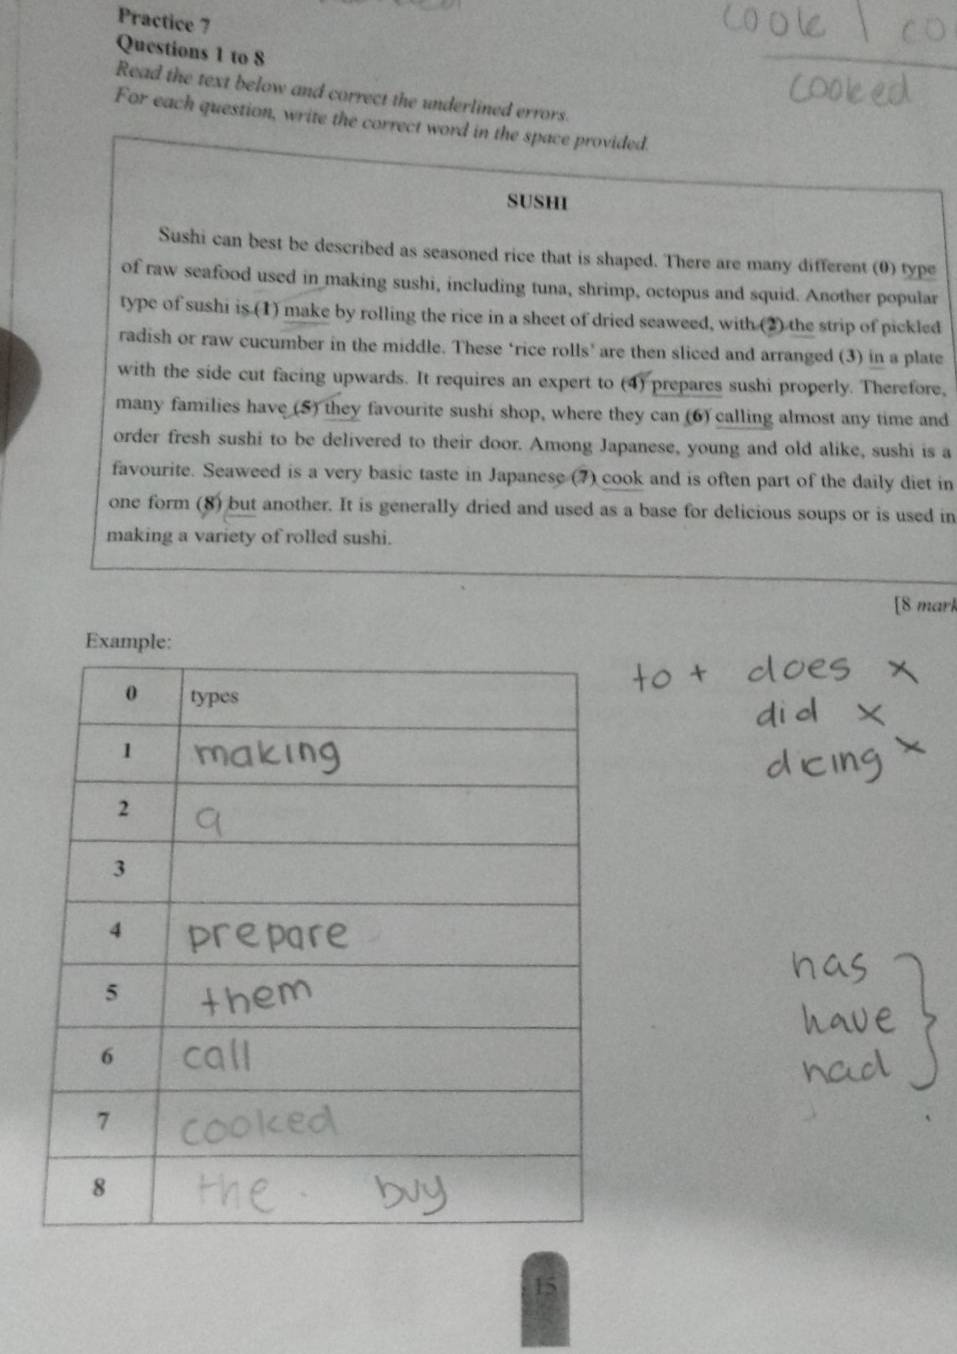 cook | co
cooked
Practice 7
Questions 1 to 8
Read the text below and correct the underlined errors.
For each question, write the correct word in the space provided.
SUSHI
Sushi can best be described as seasoned rice that is shaped. There are many different (0) type
of raw seafood used in making sushi, including tuna, shrimp, octopus and squid. Another popular
type of sushi is (1) make by rolling the rice in a sheet of dried seaweed, with (2) the strip of pickled
radish or raw cucumber in the middle. These 'rice rolls' are then sliced and arranged (3) in a plate
with the side cut facing upwards. It requires an expert to (4) prepares sushi properly. Therefore,
many families have (5) they favourite sushi shop, where they can (6) calling almost any time and
order fresh sushi to be delivered to their door. Among Japanese, young and old alike, sushi is a
favourite. Seaweed is a very basic taste in Japanese (7) cook and is often part of the daily diet in
one form (8) but another. It is generally dried and used as a base for delicious soups or is used in
making a variety of rolled sushi.
[8 mark
Example:
0 types
1 making
2 a
3
4 prepare
5 them
6 call
7 cooked
8 the. buy
to + does x
did x
dicing x
has
have
had
15